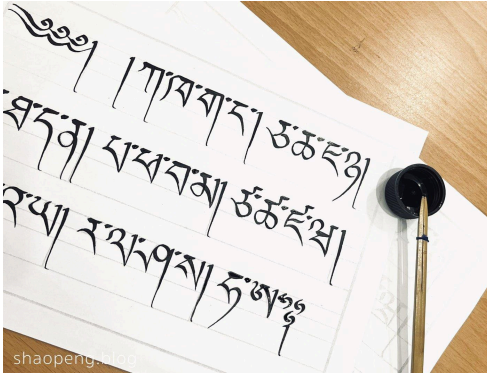 ༄༅༅། །ཀ་ཁ་ག་ང་། ཅ་ཆ་ཇ་ཉ།
ཐ་ད་ན། པ་ཕ་བ་མ། ཙ་ཚ་ཛ་ཝ།
འ་ཡ། ར་ལ་ཤ་ས། ཧ་ཨ
shaopeng.blog